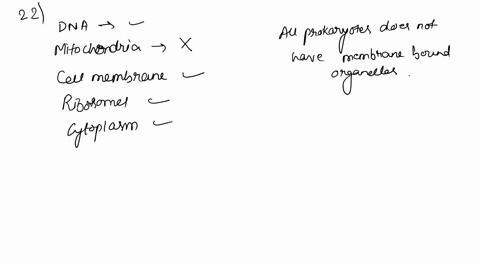 22)
DNA → ✓
Mitochondria → X
Cell membrane ✓
Ribosomes ✓
Cytoplasm ✓
All prokaryotes does not
have membrane bound
organelles.